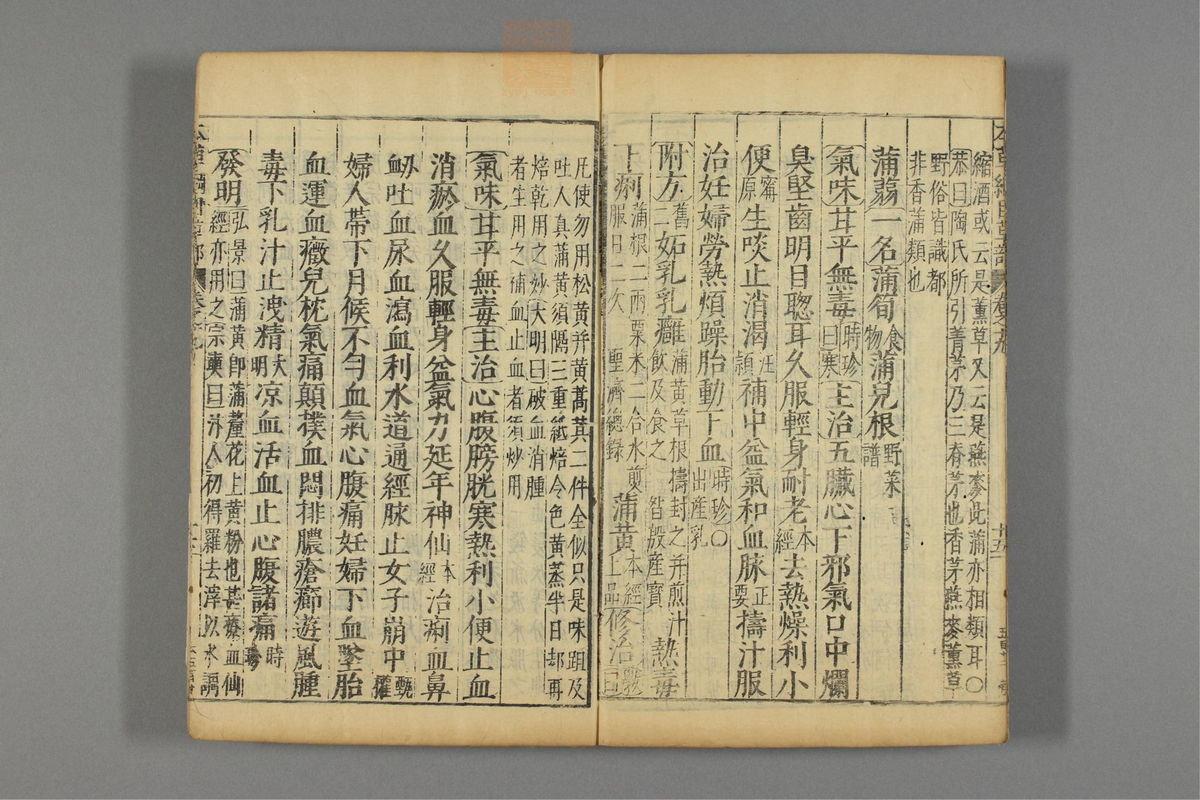 縮酒或云是薫草又云是燕麥此蒲亦相類耳〇
恭曰陶氏所引菁茅乃三脊茅也香茅燕麥薫草
野俗皆識都
非香蒲類也
蒲蒻一名蒲筍食物蒲兒根野菜譜
氣味甘平無毒時珍曰寒主治五臟心下邪氣口中爛
臭堅齒明目聦耳久服輕身耐老本經去熱燥利小
便甯原生啖止消渴汪頴補中益氣和血脉正要擣汁服
治妊婦勞熱煩躁胎動下血時珍〇出產乳
附方舊二妬乳乳癰蒲黄草根擣封之并煎汁飲及食之 昝殷產寶熱毒
下痢蒲根二兩粟米二合水煎服日二次 聖濟總錄蒲黄本經上品修治斆曰
凡使勿用松黄并黄蒿其二件全似只是味跙及
吐人真蒲黄須隔三重紙焙令色黄蒸半日却再
焙乾用之妙大明曰破血消腫
者生用之補血止血者須炒用
氣味甘平無毒主治心腹膀胱寒熱利小便止血
消瘀血久服輕身益氣力延年神仙本經治痢血鼻
衂吐血尿血瀉血利水道通經脉止女子崩中甄權
婦人帶下月候不匀血氣心腹痛妊婦下血墜胎
血運血癥兒枕氣痛顛撲血悶排膿瘡癤遊風腫
毒下乳汁止洩精大明凉血活血止心腹諸痛時珍
發明弘景曰蒲黄卽蒲釐花上黄粉也甚療血仙
經亦用之宗奭曰汴人初得羅去滓以水調